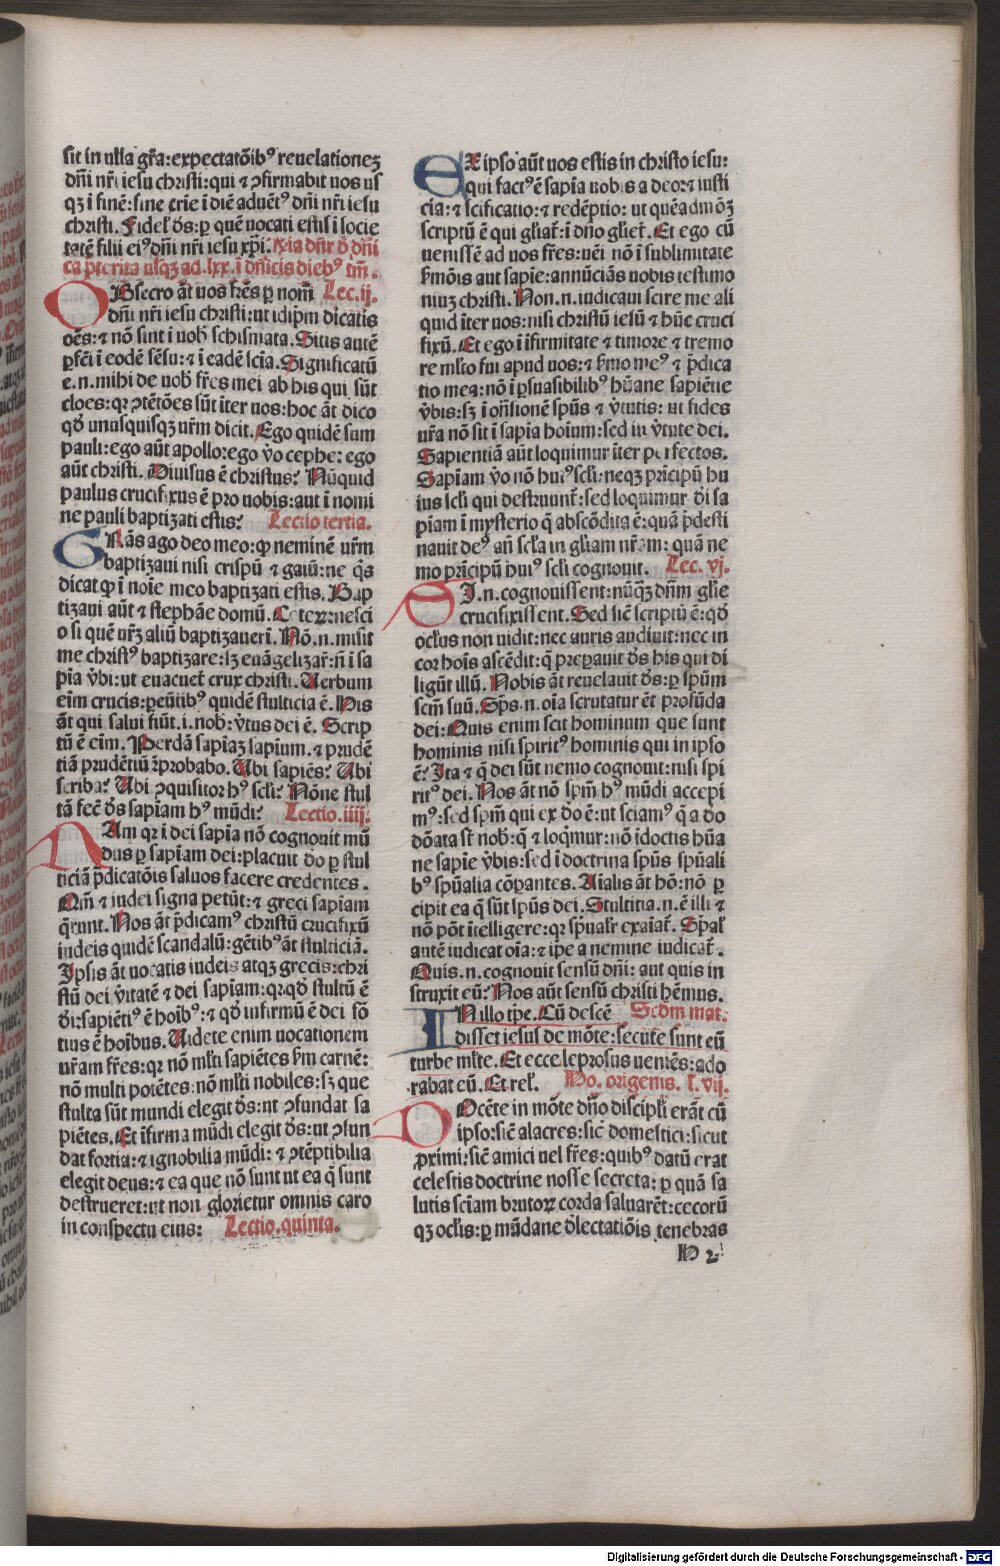 sit in ulla gr̃a:expectatõibꝰ reuelationeʒ
dñi nr̃i iesu christi:qui ⁊ ꝯfirmabit uos us
qʒ ĩ finẽ:sine crĩe ĩ diẽ aduẽtꝰ dñi nr̃i iesu
christi. Fidel' d̃s:ꝑ quẽ uocati estis ĩ socie
tatẽ filii eiꝰ dñi nr̃i iesu xp̃i.
ca p̃terita usqʒ ad .lxx. ĩ dñicis diebꝰ tm̃.
OBsecro ãt uos fr̃es ꝑ nom̃ Lec.ij.
dñi nr̃i iesu christi:ut idip̃m dicatis
oẽs:⁊ nõ sint ĩ uob̃ schismata. Sitis autẽ
ꝑfẽi ĩ eodẽ sẽsu:⁊ ĩ eadẽ sc̃ia. Significatũ
e.n.mihi de uob̃ fr̃es mei ab his qui sũt
cloes:qꝛ ꝯtẽtões sũt ĩter uos:hoc ãt dico
qd̃ unusquisqʒ ur̃m dicit. Ego quidẽ sum
pauli:ego aũt apollo:ego ṽo cephe:ego
aũt christi. Diuisus ẽ christus? Nũquid
paulus crucifixus ẽ pro uobis:aut ĩ nomi
ne pauli baptizati estis? Lectio tertia.
GRãs ago deo meo:ꝙ neminẽ ur̃m
baptizaui nisi crispũ ⁊ gaiũ:ne q̃s
dicat ꝙ ĩ noĩe meo baptizati estis. Bap
tizaui aũt ⁊ stephãe domũ. Ceteꝝ:nesci
o si quẽ ur̃ʒ aliũ baptizauerĩ. Nõ.n.misit
me christꝰ baptizare:sʒ euãgelizar̃:ñ ĩ sa
pĩa ṽbi:ut euacuet̃ crux christi. Uerbum
eĩm crucis:peũtibꝰ quidẽ stulticia ẽ. His
ãt qui salui fiũt.i.nob̃:ṽtus dei ẽ. Scrip
tũ ẽ eĩm. Perdã sapĩaʒ sapium.⁊ prudẽ
tiã prudẽtiũ r̃probabo. Ubi sapiẽs? Ubi
scriba? Ubi ꝯquisitor hꝰ scl̃i? Nõne stul
tã fec̃ d̃s sapĩam hꝰ mũdi? Lectio.iiij.
NAm qꝛ ĩ dei sapĩa nõ cognouit mũ
dus ꝑ sapĩam dei:placuit d̃o ꝑ stul
ticiã p̃dicatõis saluos facere credentes.
Qm̃ ⁊ iudei signa petũt:⁊ greci sapĩam
q̃runt. Nos ãt p̃dicamꝰ christũ crucifixũ
iudeis quidẽ scandalũ:gẽtibꝰ ãt stulticiã.
Ipsis ãt uocatis iudeis atqʒ grecis:chri
stũ dei ṽtutẽ ⁊ dei sapĩam:qꝛ qd̃ stultũ ẽ
d̃i:sapiẽtiꝰ ẽ hoĩbꝰ:⁊ qd̃ infirmũ ẽ dei fõ
tius ẽ hoĩbus. Uidete enim uocationem
ur̃am fr̃es:qꝛ nõ ml̃ti sapiẽtes s̃m carnẽ:
nõ multi potẽtes:nõ ml̃ti nobiles:sʒ que
stulta sũt mundi elegit d̃s:ut ꝯfundat sa
piẽtes. Et ĩfirma mũdi elegit d̃s:ut ꝯfun
dat fortia:⁊ ignobilia mũdi:⁊ ꝯtẽptibilia
elegit deus:⁊ ea que nõ sunt ut ea q̃ sunt
destrueret:ut non glorietur omnis caro
in conspectu eius: Lectio.quinta.
EX ipso aũt uos estis in christo iesu:
qui factꝰ ẽ sapĩa uobis a deo:⁊ iusti
cia:⁊ sc̃ificatio:⁊ redẽptio:ut quẽadmõʒ
scriptũ ẽ qui gl̃iat̃:ĩ dño gl̃iet̃. Et ego cũ
uenissẽ ad uos fr̃es:uẽi nõ ĩ sublimitate
s̃mõis aut sapĩe:annũciãs uobis testimo
niuʒ christi. Non.n.iudicaui scire me ali
quid ĩter uos:nisi christũ iesũ ⁊ hũc cruci
fixũ. Et ego ĩ ĩfirmitate ⁊ timore ⁊ tremo
re ml̃to fui apud uos:⁊ s̃mo meꝰ ⁊ p̃dica
tio mea:nõ ĩ ꝑsuasibilibꝰ hũane sapiẽtie
ṽbis:sʒ ĩ oñsionẽ spũs ⁊ ṽtutis:ut fides
ur̃a nõ sit ĩ sapĩa hoĩum:sed in ṽtute dei.
Sapientiã aũt loquimur ĩter perfectos.
Sapĩam ṽo nõ huiꝰ scl̃i:neqʒ prĩcipũ hu
ius scl̃i qui destruunt̃:sed loquimur d̃i sa
pĩam ĩ mysterio q̃ abscõdita ẽ:quã p̃desti
nauit deꝰ añ scl̃a in gl̃iam nr̃am:quã ne
mo prĩcipũ huiꝰ scl̃i cognouit. Lec. vj.
SI.n.cognouissent:nũqʒ dñm gl̃ie
crucifixissent. Sed siẽ scriptũ ẽ:qd̃
ocl̃us non uidit:nec auris audiuit:nec in
cor hoĩs ascẽdit:q̃ preparauit d̃s his qui di
ligũt illũ. Nobis ãt reuelauit d̃s:ꝑ spũm
scm̃ suũ. Sp̃s.n.oĩa scrutatur ẽt profũda
dei:Quis enim scit hominum que sunt
hominis nisi spiritꝰ hominis qui in ipso
ẽ? Ita ⁊ q̃ dei sũt nemo cognouit:nisi spi
ritꝰ dei. Nos ãt nõ spm̃ hꝰ mũdi accepi
mꝰ:sed spm̃ qui ex d̃o ẽ:ut sciamꝰ q̃ a do
dõata st̃ nob̃:q̃ ⁊ loq̃mur:nõ ĩdoctis hũa
ne sapĩe ṽbis:sed ĩ doctrina spũs spũali
bꝰ spũalia cõpantes. Aĩalis ãt hõ:nõ ꝑ
cipit ea q̃ sũt spũs dei. Stultitia.n.ẽ illi ⁊
nõ põt ĩtelligere:qꝛ spũalr̃ exaĩat̃. Spãl'
autẽ iudicat oĩa:⁊ ip̃e a nemine iudicat̃.
Quis.n.cognouit sensũ dñi:aut quis in
struxit eũ? Nos aũt sensũ christi hẽmus.
IN illo tp̃e. Cũ descẽ Scd̃m mat.
disset iesus de mõte:secute sunt eũ
turbe ml̃te. Et ecce leprosus ueniẽs:ado
rabat eũ. Et rel̃. Ho. origenis. l.vij.
DOcẽte in mõte dño discipl̃i erãt cũ
ipso:siẽ alacres:siẽ domestici:sicut
ꝓximi:siẽ amici uel fr̃es:quibꝰ datũ erat
celestis doctrine nosse secreta:ꝑ quã sa
lutis sc̃iam brutoꝝ corda saluarẽt:cecorũ
qʒ ocl̃is:ꝑ mũdane d̃lectatiõis tenebras